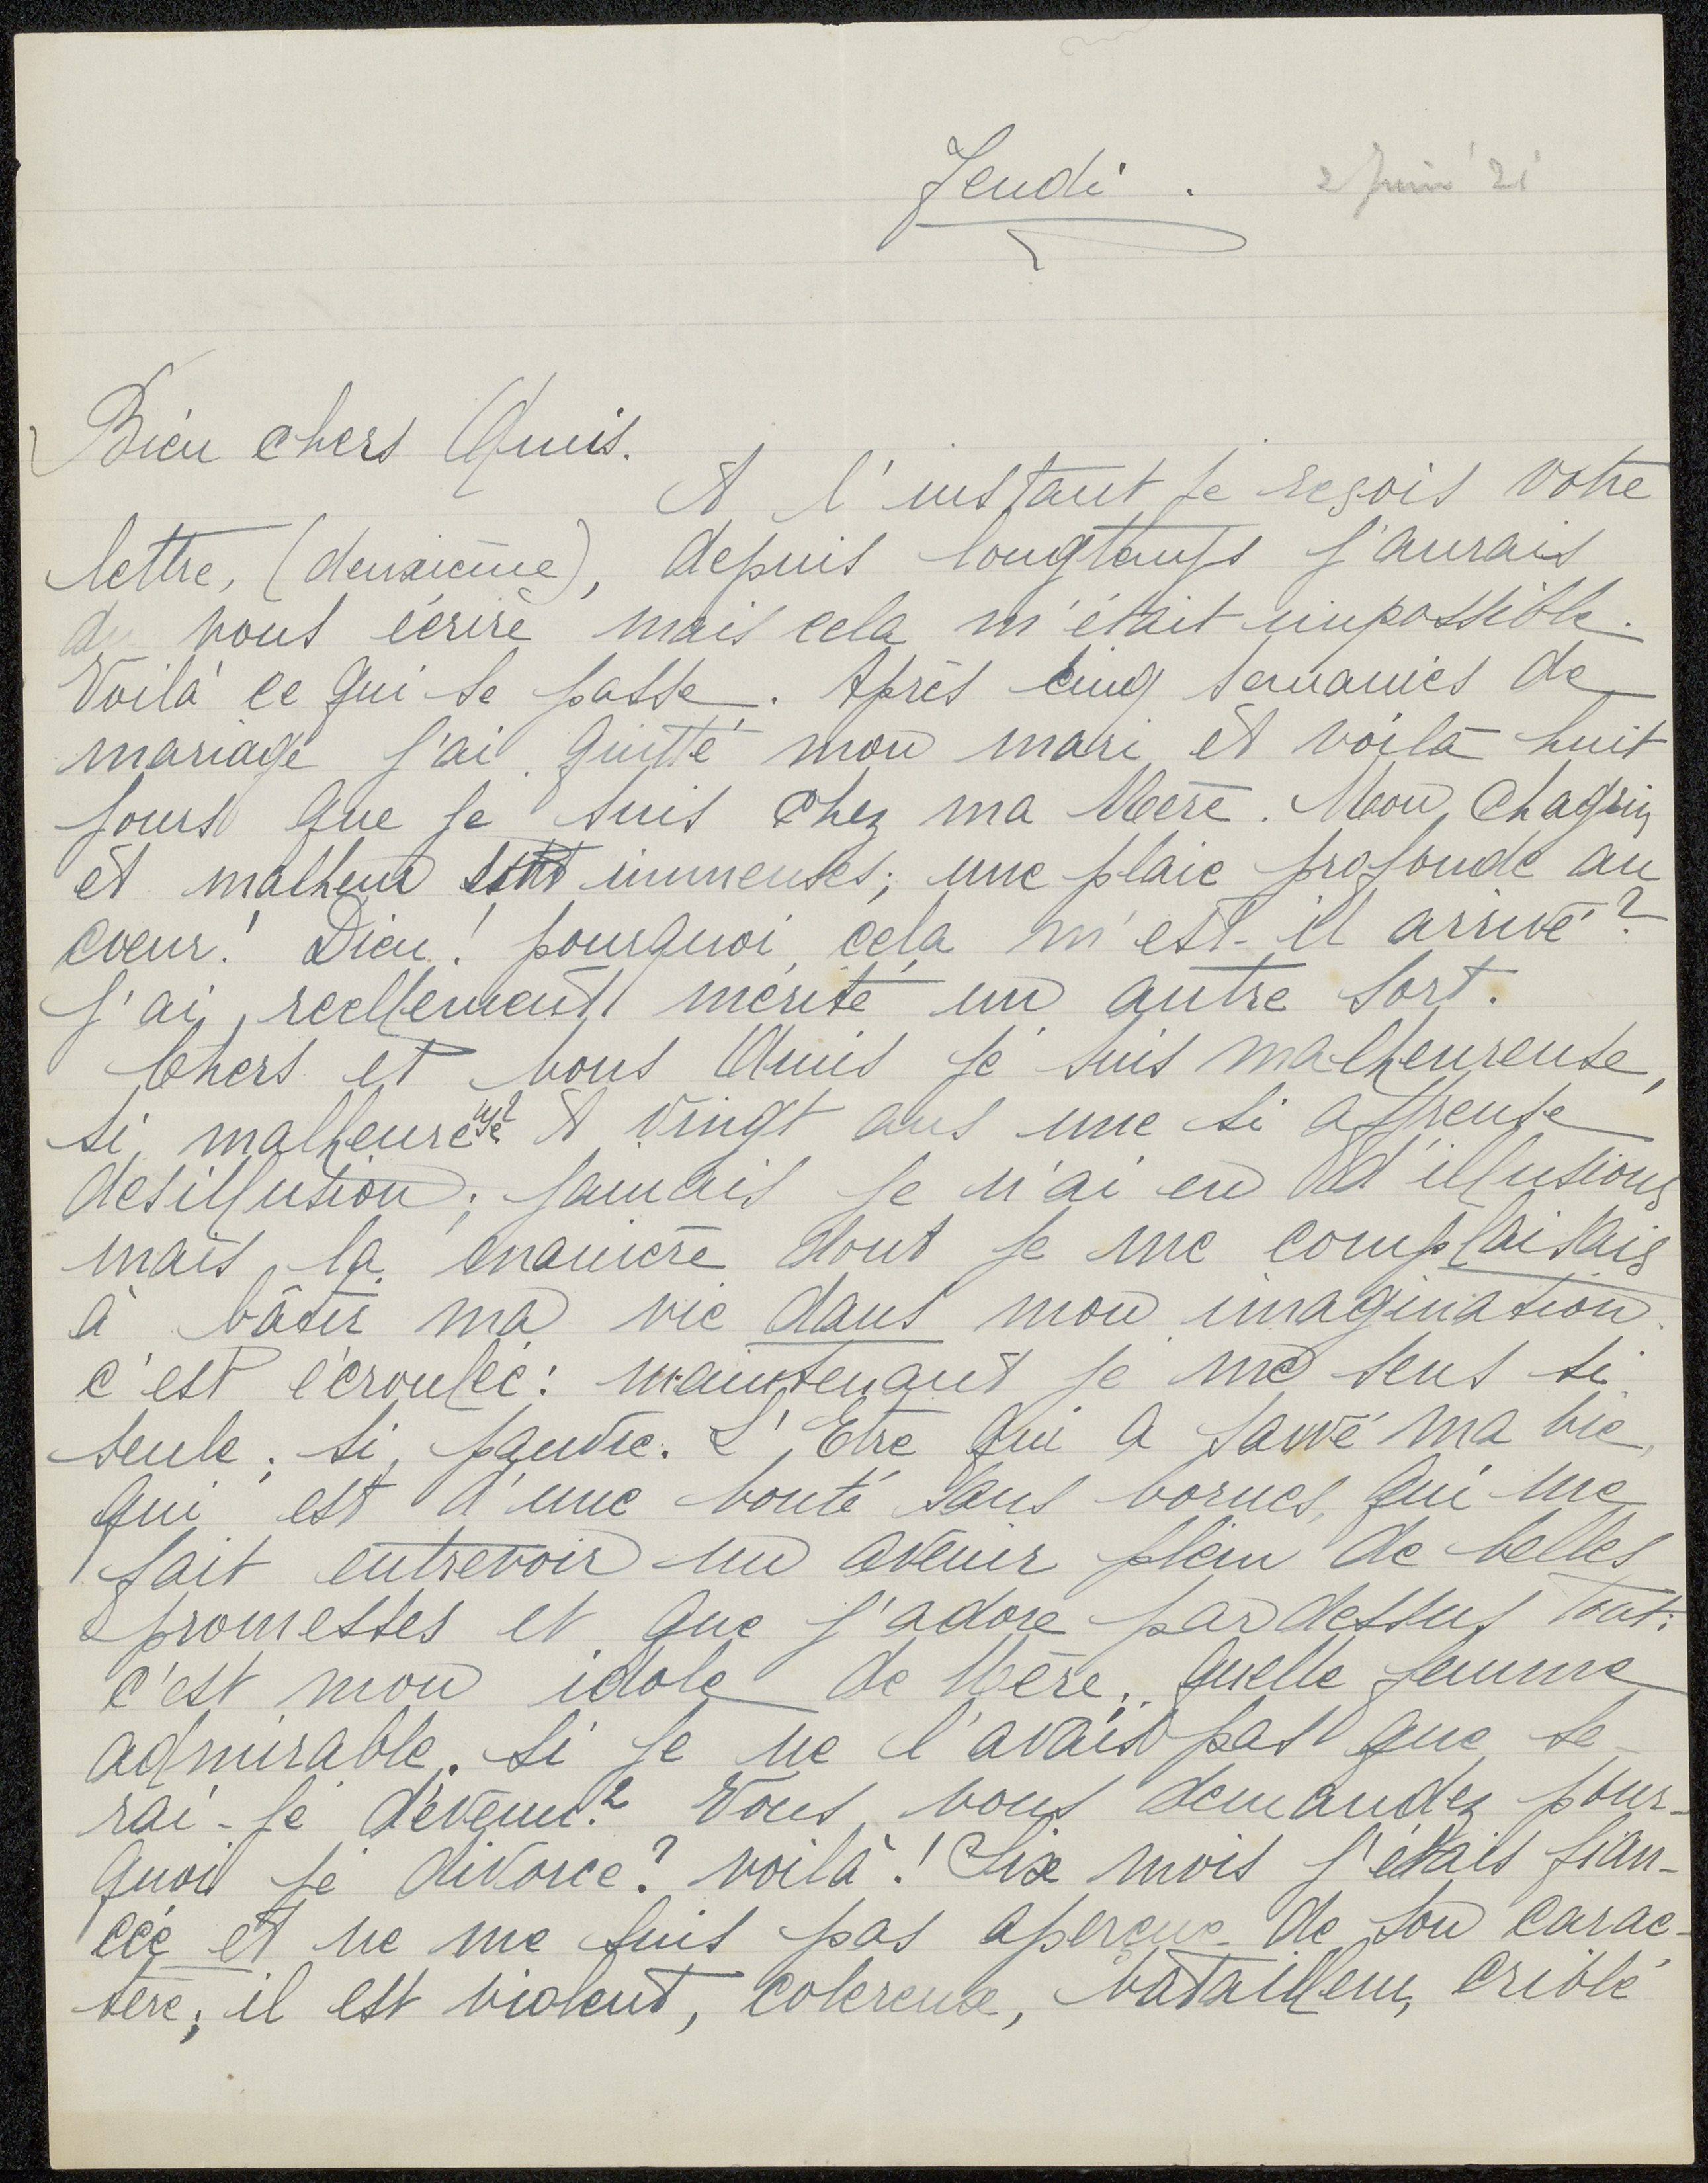 Jeudi. 2 Juin '21
Bien chers Amis.
A l'instant je reçois votre
lettre, (deuxième), depuis longtemps j'aurais
du vous écrire mais cela m'était impossible.
Voilà ce qui se passe. Après cinq semaines de
mariage j'ai quitté mon mari et voilà huit
jours que je suis chez ma Mère. Mon chagrin
et malheur sont immenses; une plaie profonde au
coeur! Dieu! pourquoi cela m'est-il arrivé?
J'ai reellement mérité un autre sort.
Chers et bons Amis je suis malheureuse,
si malheureuse? A vingt ans une si affreuse
desillusion; jamais je n'ai eu d'illusions
mais la manière dont je me complaisais
à bâtir ma vie dans mon imagination
c'est écroulée: maintenant je me sens si
seule; si pauvre. L'Etre qui a sauvé ma vie,
qui est d'une bonté sans bornes, qui me
fait entrevoir un avenir plein de belles
promesses et que j'adore pardessus tout:
c'est mon idole de Mère. quelle femme
admirable. Si je ne l'avais pas que se-
rai-je devenue? Vous vous demandez pour-
quoi je divorce? voilà! Six mois j'étais fian-
cée et ne me suis pas aperçue de son carac-
tère; il est violent, colereux, batailleur, criblé